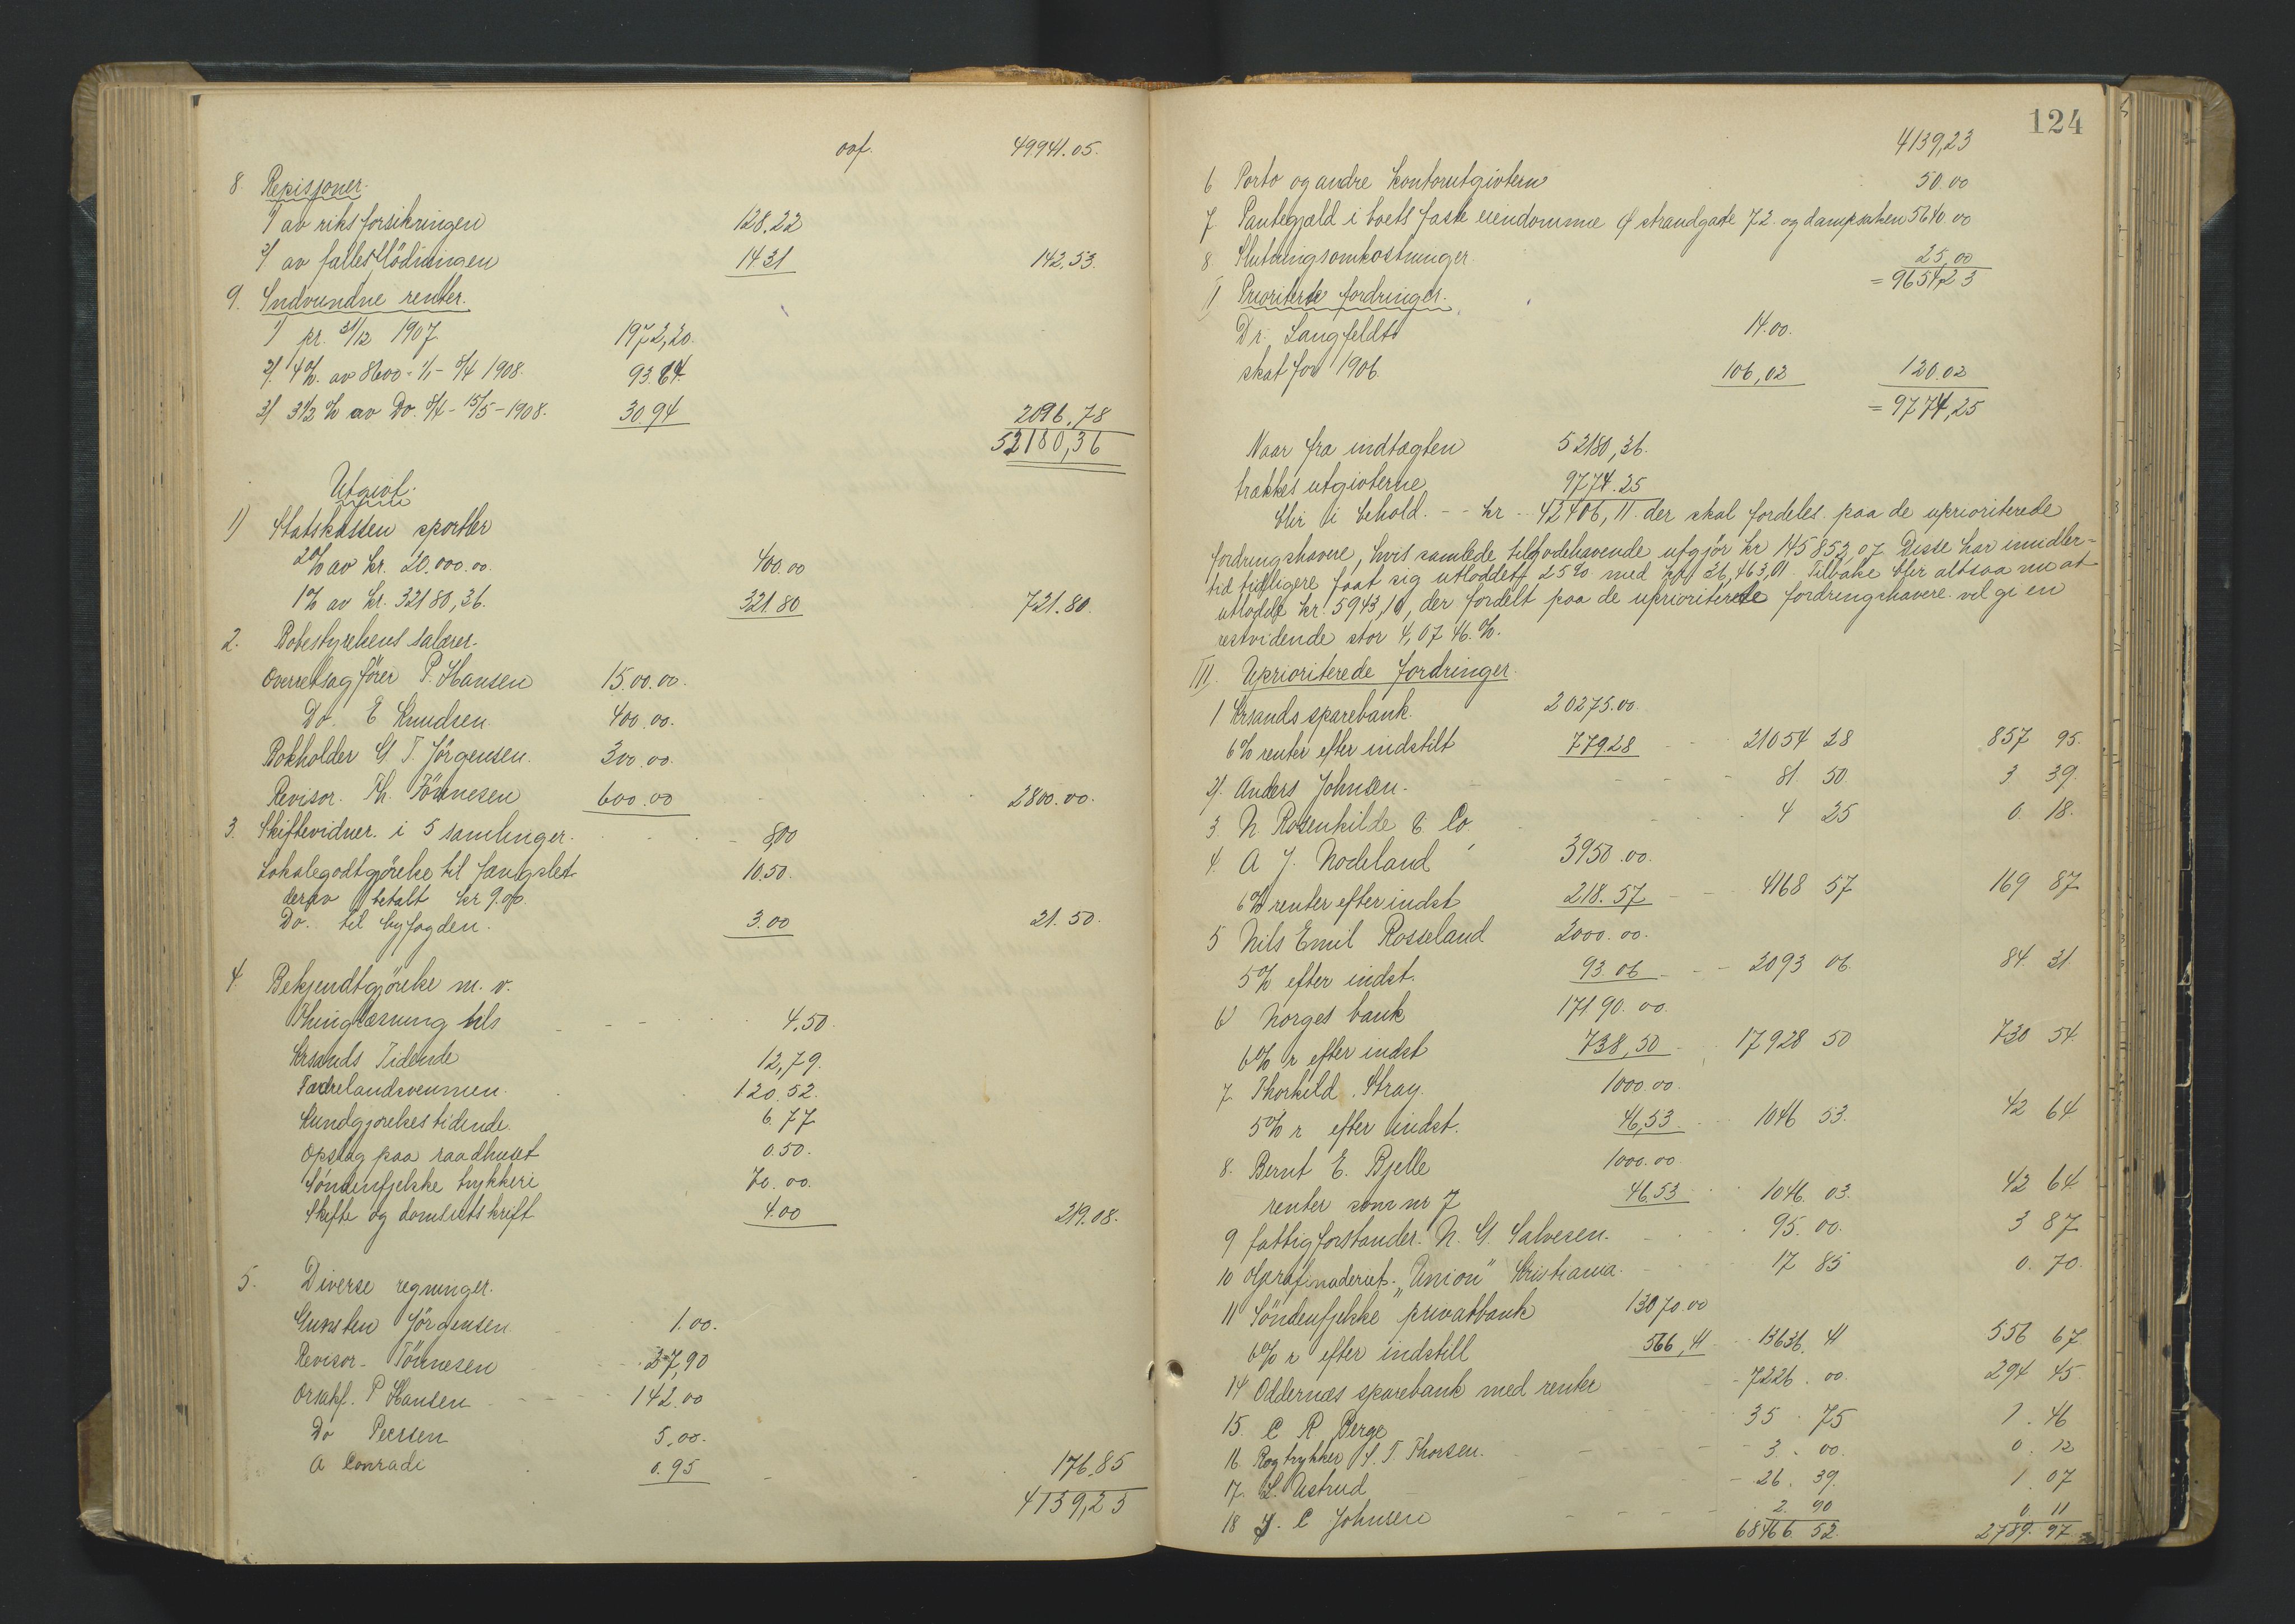 ovf. 49941.05.
8. Refusjoner.
1/ av riksforsikringen 128.22
2/ av fællesslödningen 14 31 142,53.
9. Indvundne renter.
1) pr. 31/12 1907 1972,20.
2/. 4 %. av 8600 - 1/1 - 8/4 1908. 93.64.
3/ 3 1/2 % av Do. 8/4 - 15/5 - 1908. 30.94 2096.78
52180,36
Utgivt:
1) Statskassen sportler
2 % av kr. 20.000.00. 400.00
1 % av kr. 32180,36. 321.80 721.80.
2. Bobestyrelsens salærer.
Overretssagförer P. Hansen 15.00.00.
Do. E Knudsen 400.00.
Bokholder G. T. Jörgensen. 300.00.
Revisor. Th. Tönnesen 600.00 2800.00.
3. Skiftevidner. i 5 samlinger. 8,00
Lokalegodtgjörelse til fængslet 10.50.
derav betalt kr 9.00.
Do. til byfogden. 3.00 21.50.
4 Bekjendtgjörelse m. v.
Thinglæsning tils 4.50.
Krsands Tidende 12,79.
Fædrelandsvennen. 120.52.
Kundgjörelsestidende. 6.77
Opslag paa raadhuset 0.50.
Söndenfjelske trykkeri 70.00.
Skifte og domsutskrift 4.00 219.08.
5. Diverse regninger.
Gunsten Jörgensen 1.00.
Revisor - Tönnesen 27,90
Orsakf. P Hansen 142.00
Do Peersen 5,00.
A Conradi 0.95 176.85
4139,23
124
4139,23
6 Porto og andre kontorutgivter 50.00
7 Pantegjæld i boets faste eiendomme Ø strandgade 72. og dampsaken 5640.00
8. Slutningsomkostninger. 25,00
= 9654,23
II Prioriterte fordringer.
Dr. Langfeldt 14.00.
skat for 1906. 106,02 120.02
= 9774,25
Naar fra indtægten 52180,36.
trækkes utgivterne 9774.25
blir i behold. - - kr - 42406,11 der skal fordeles paa de uprioriterede
fordringshavere, hvis samlede tilgodehavende utgjör kr 145852,07. Disse har imidler-
tid tidligere faat sig utloddet 25 % med kr. 36,463,01. Tilbake blir altsaa nu at
utlodde kr. 5943,10, der fordelt paa de uprioriterede fordringshavere vil gi en
restvidende stor 4,07 46. %.
III. Uprioriterede fordringer.
1 Krsands sparebank. 20275.00.
6 % renter efter indstilt 779.28 21054 28 857 95.
2/. Anders Johnsen. 81. 50 3 39.
3. N. Rosenkilde & Co 4 25 0. 18.
4. A J. Nodeland 3950.00.
6 % renter efter indst 218.57 4168 57 169 87
5 Nils Emil Rosseland 2000.00.
5 % efter indst. 93.06 2093 06. 84 31.
6 Norges bank 17190.00.
6 % r efter indst 738,50 17928 50 730 54.
7. Thorkild Stray. 1000.00.
5 % r efter indst. 46,53 1046 53. 42 64
8. Bernt E. Bjelle 1000.00
renter som nr 7 46.53 1046. 03. 42 64
9 fattigforstander. N. G. Salvesen. 95. 00. 3 87
10 Oljerafinaderiet „Union" Kristiania. 17 85 0. 70.
11 Söndenfjelske privatbank 13070.00
6 % r efter indstill 566,41 13636. 41 556 67
14 Oddernæs sparebank med renter 7226. 00. 294 45
15. C R Berge 35. 75 1. 46
16. Bogtrykker S. T. Thorsen. 3. 00. 0. 12
17. L. Ustrud 26. 39. 1. 07
18 J. C Johnsen 2. 90 0 11
68466 52. 2789. 97